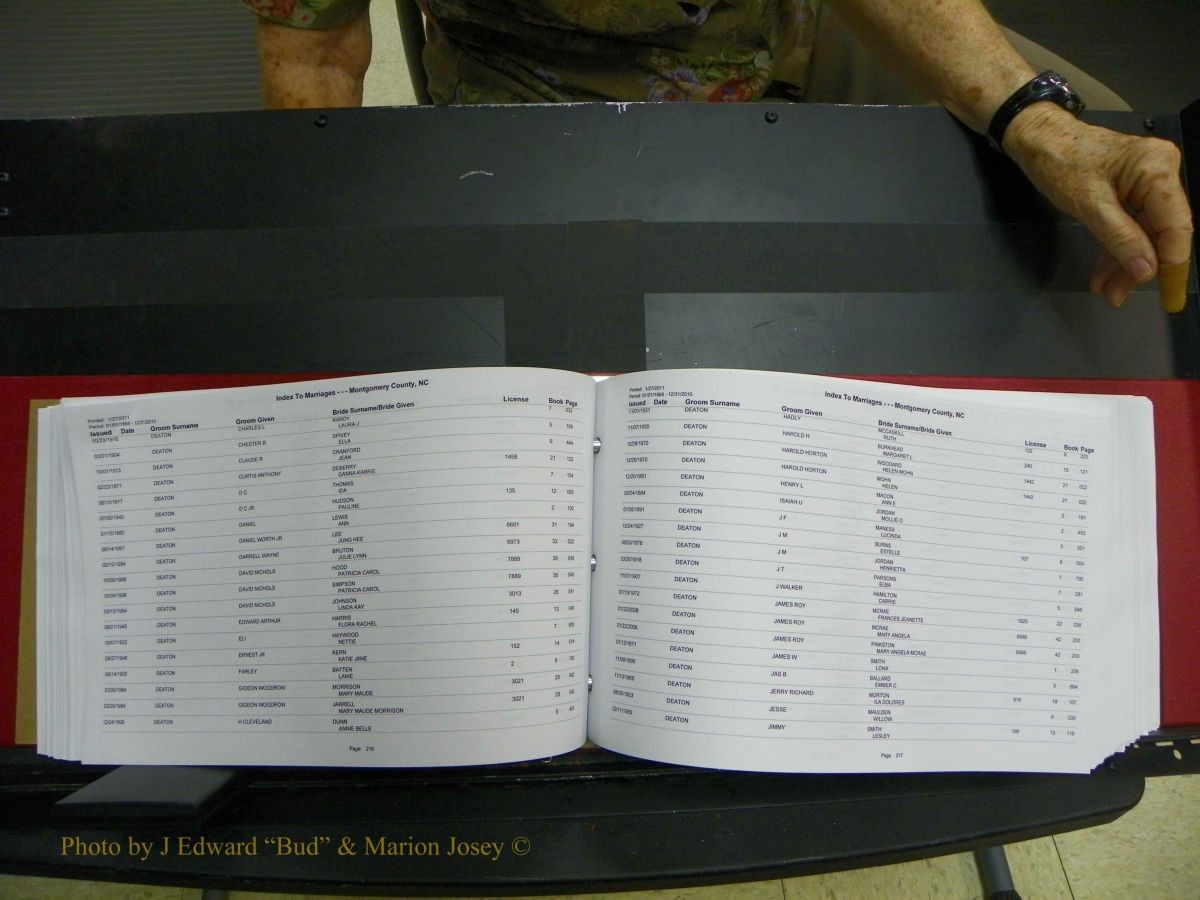 Index To Marriages - - - Montgomery County, NC
Printed: 1/27/2011
Period: 01/01/1868 - 12/31/2010
Issued Date Groom Surname Groom Given Bride Surname/Bride Given License Book Page
DEATON CHARLES L KANDY 7
LAURA J
03/01/1904 DEATON CHESTER B SPIVEY 5 159
ELLA
10/01/1913 DEATON CLAUDE R CRANFORD 6 444
JEAN
02/23/1971 DEATON CURTIS ANTHONY DEBERRY 1458 21 122
DANNA KARRIE
DEATON D C THOMAS 7 154
IDA
DEATON D C JR HUDSON 135 12 093
PAULINE
DEATON DANIEL LEWIS 2 100
ANN
DEATON DANIEL WORTH JR LEE 6601 31 194
JUNG HEE
DEATON DARRELL WAYNE BRUTON 6973 33 022
JULIE LYNN
DEATON DAVID NICHOLS HOGD 7889 36 049
PATRICIA CAROL
DEATON DAVID NICHOLS SIMPSON 7889 36 049
PATRICIA CAROL
DEATON DAVID NICHOLS JOHNSON 3013 28 041
LINDA KAY
DEATON EDWARD ARTHUR HARRIS 145 13 046
FLORA RACHEL
DEATON ELI HAYWOOD 7
NETTIE
DEATON ERNEST JR KERN 152 14 014
KATIE JANE
DEATON FARLEY BATTEN 2 9 100
LANIE
DEATON GIDEON WOODROW MORRISON 3021 28 042
MARY MAUDE
DEATON GIDEON WOODROW JARRELL 3021 28 042
MARY MAUDE MORRISON
12/24/1906 DEATON H CLEVELAND DUNN 5
ANNIE BELLE
Page 216
Index To Marriages - - - Montgomery County, NC
Printed: 1/27/2011
Period: 01/01/1868 - 12/31/2010
Issued Date Groom Surname Groom Given Bride Surname/Bride Given License Book Page
11/01/1931 DEATON HADLY MCCASKILL 122 9 225
RUTH
11/07/1935 DEATON HAROLD H BURKHEAD 240 10 121
MARGARET L
12/26/1970 DEATON HAROLD HORTON WOODARD 1442 21 022
HELEN MOHN
12/26/1970 DEATON HAROLD HORTON MOHN 1442 21 022
HELEN
12/20/1881 DEATON HENRY L MACON 2 181
ANN E
09/24/1884 DEATON ISAIAH U JORDAN 2 463
MOLLIE D
DEATON J F MANESS 3 301
LUCINDA
12/24/1927 DEATON J M BURNS 107 8 304
ESTELLE
DEATON J M JORDAN 1 790
HENRIETTA
DEATON J T PARSONS 7 281
ELBA
11/07/1907 DEATON J WALKER HAMILTON 5 548
CARRIE
07/13/1972 DEATON JAMES ROY MCRAE 22 036
FRANCES JEANETTE
01/22/2008 DEATON JAMES ROY MCRAE 9588 42 200
MARY ANGELA
01/22/2008 DEATON JAMES ROY PINKSTON 9588 42 200
MARY ANGELA MCRAE
07/12/1871 DEATON JAMES W SMITH 1 206
LONA
DEATON JAS B BALLARD 3 664
EMMER C
11/13/1965 DEATON JERRY RICHARD MORTON 818 18 107
ILA DOLORES
DEATON JESSE MAULDEN 5 035
WILLOW
02/11/1955 DEATON JIMMY SMITH 198 15 118
LESLEY
Page 217
Photo by J Edward “Bud” & Marion Josey ©